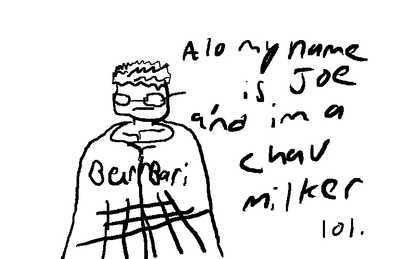 Alo my name
is JOE
and im a
chav
milker
lol.